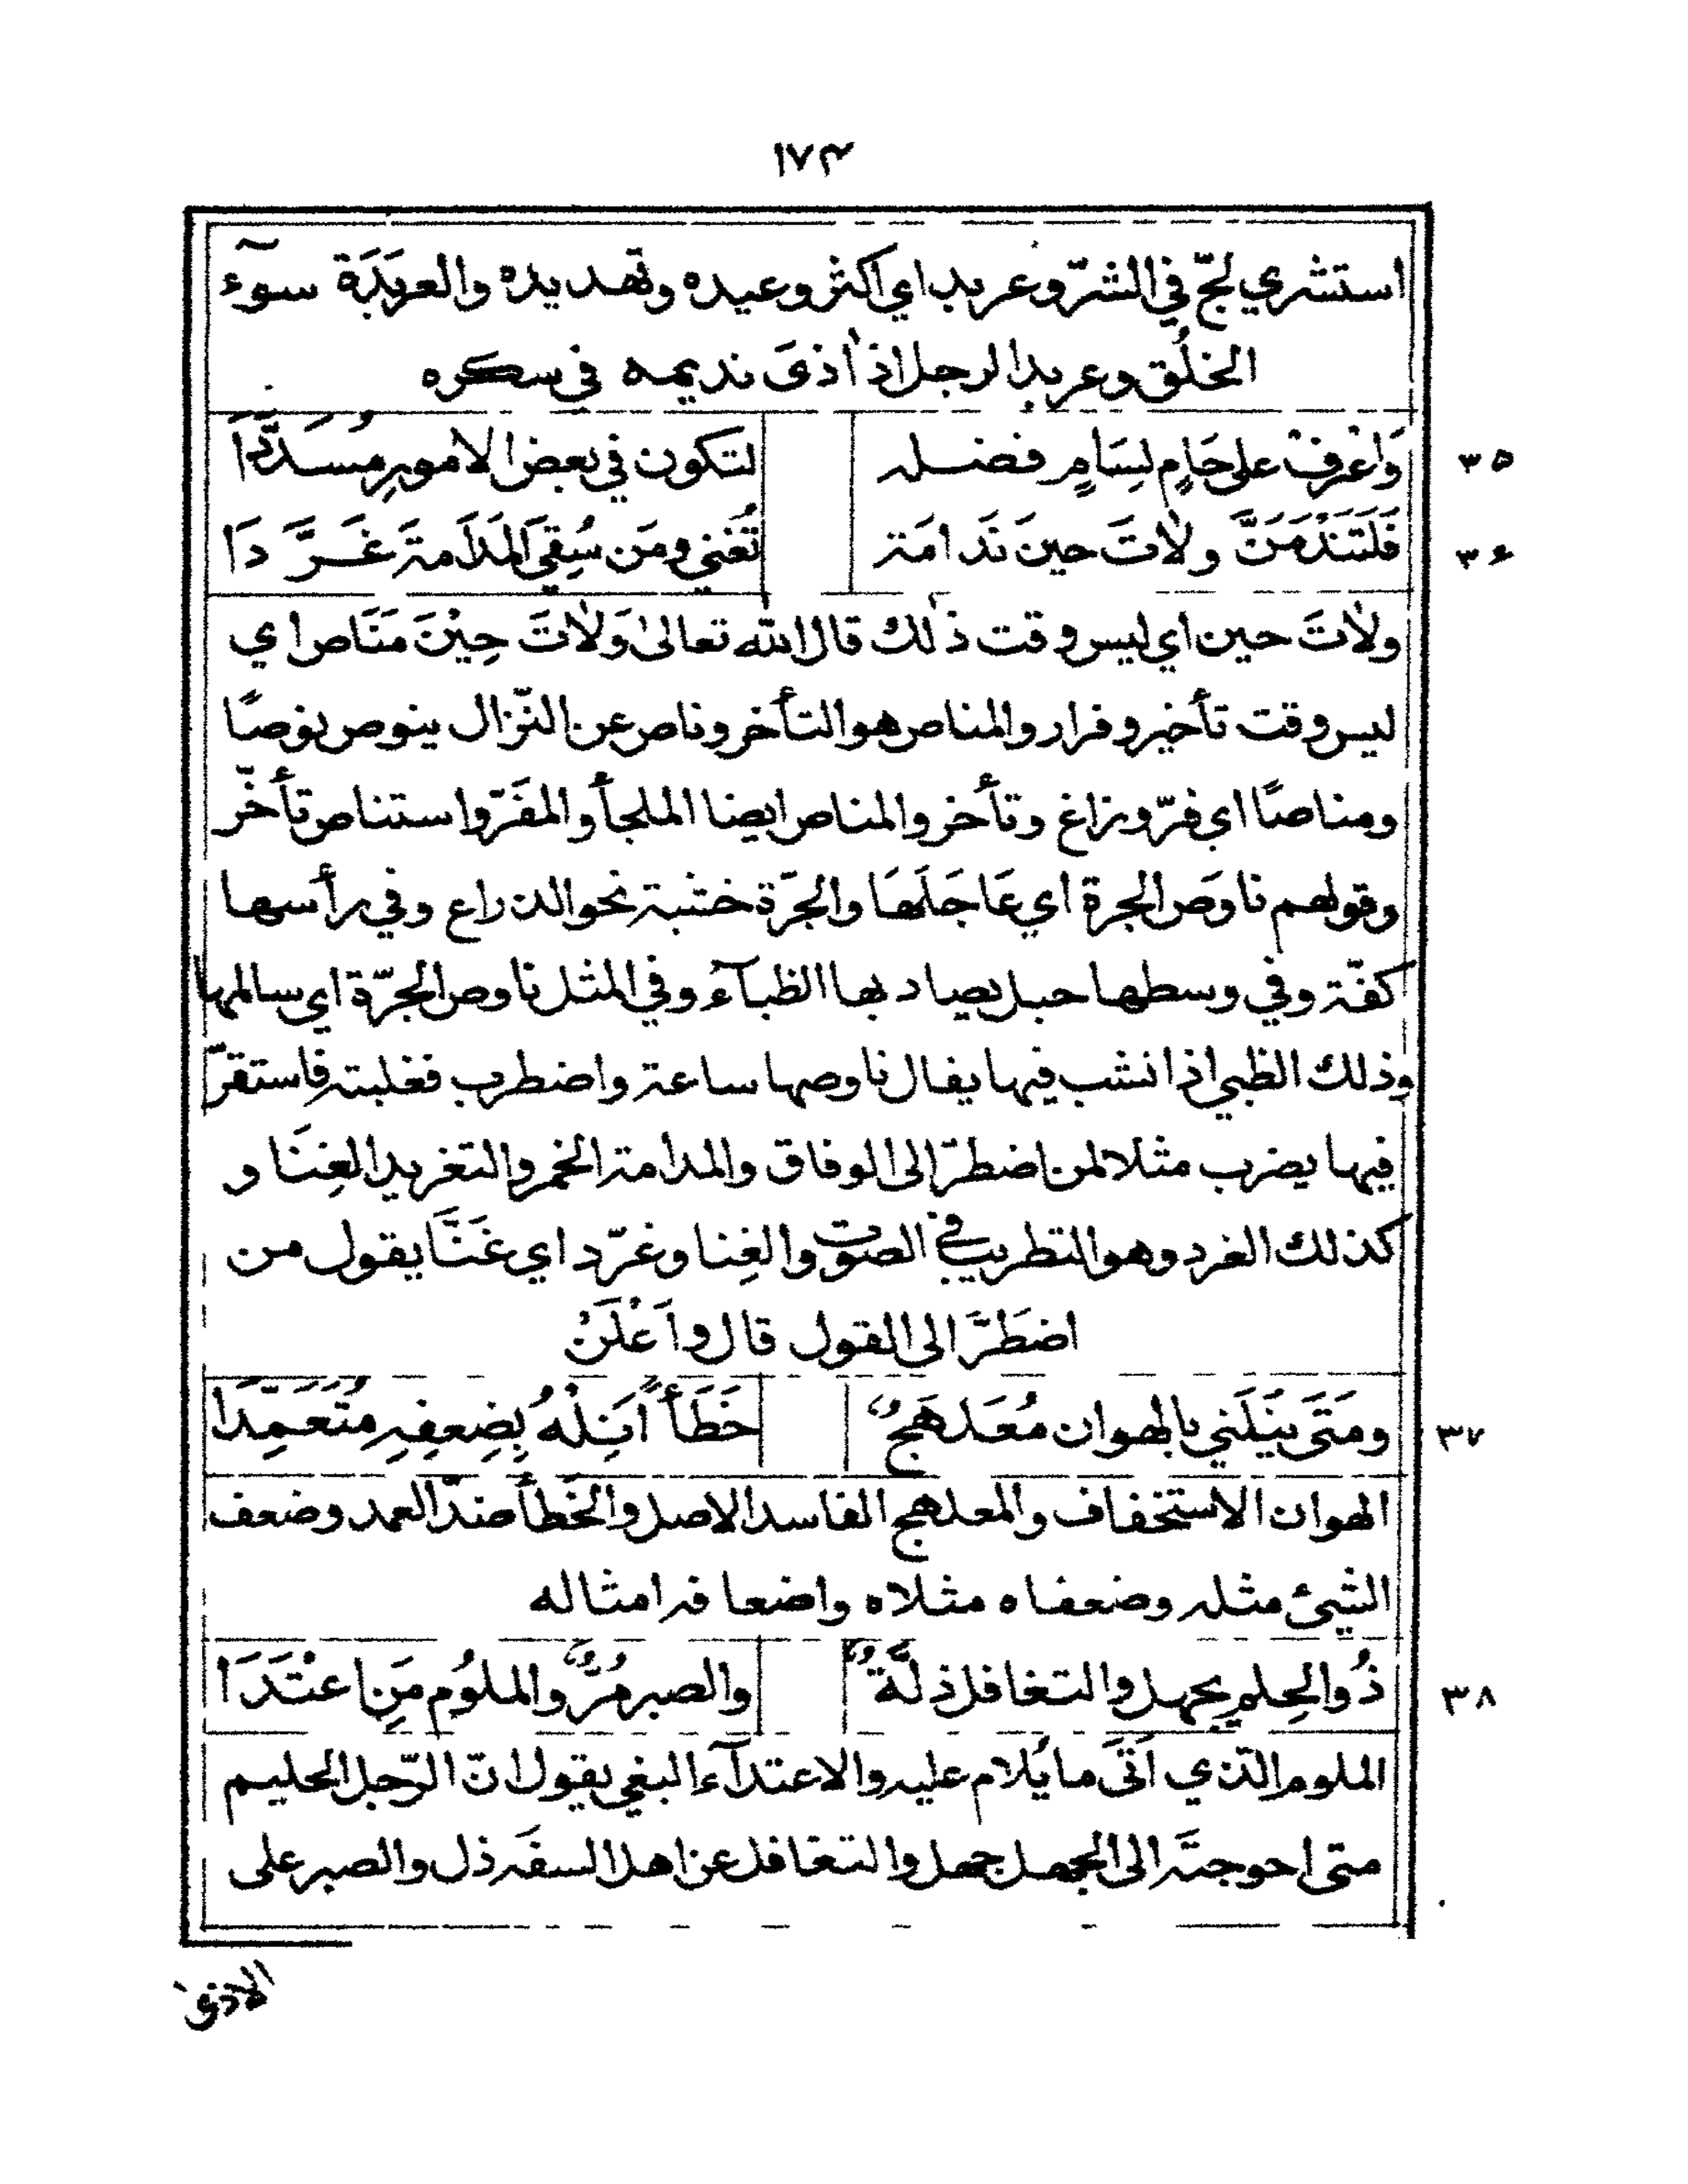 ١٧٣
استشري لجّ في الشرّ وعربد اي اكثر وعيده وتهديده والعربَدَة سوٓء
الخلُق وعربد الرجل اذا اذىَ نديمه في سكره
٣٥ وَاعْرِفْ على حَامٍ لِسَامٍ فضله لتكون في بعض الامورِ مُسَدَّدَا
٣٦ فَلَتَنْدَمَنَّ ولاتَ حينَ نَدامَة تُغني ومَن سُقِيَ المَدَامةَ غَرَّدَا
ولاتَ حين اي ليس وقت ذلك قال الله تعالى وَلاتَ حِيْنَ مَنَاص اي
ليس وقت تأخير وفرار والمناص هو التأخر وناص عن النّزال ينوص نوصًا
ومناصًا اي فرّ وزاغ وتأخر والمناص ايضا الملجأ والمفَرّ واستناص تأخّر
وقولهم ناوَص الجرة اي عَاجَلَهَا والجرّة خشبة نحو الذراع وفي رأسها
كفّة وفي وسطها حبل يصاد بها الظبآء وفي المثل ناوص الجرّة اي سالمها
وذلك الظبي اذا نشب فيها يقال ناوصها ساعة واضطرب فغلبته فاستقرّ
فيها يضرب مثلا لمن اضطرّ الى الوفاق والمدامة الخمر والتغريد الغِنَا و
كذلك الغرد وهو التطريب في الصوت والغِنا وغرّد اي غَنَّا يقول من
اضطَرَّ الى القول قال واَعْلَنْ
٣٧ ومَتَى يَنَلَني بالهوان مُعَلهَجٌ خَطَأً اَنِلْهُ بِضِعفِهِ مُتَعَمِّدَا
الهوان الاستخفاف والمعلهج الفاسد الاصل والخَطأ ضدّ العمد وضعف
الشيئ مثله وضعفاه مثلاه واضعافه امثاله
٣٨ ذُو الحِلمِ يجهل والتغافل ذلَّةٌ والصبر مُرٌّ والملُوم مَنِ اعتَدَا
الملوم الّذي اَتَى ما يُلام عليه والاعتدآء البغي يقول انّ الرّجل الحليم
متى احوجتَه الى الجهل جهل والتغافل عن اهل السفَه ذل والصبر على
الاذى